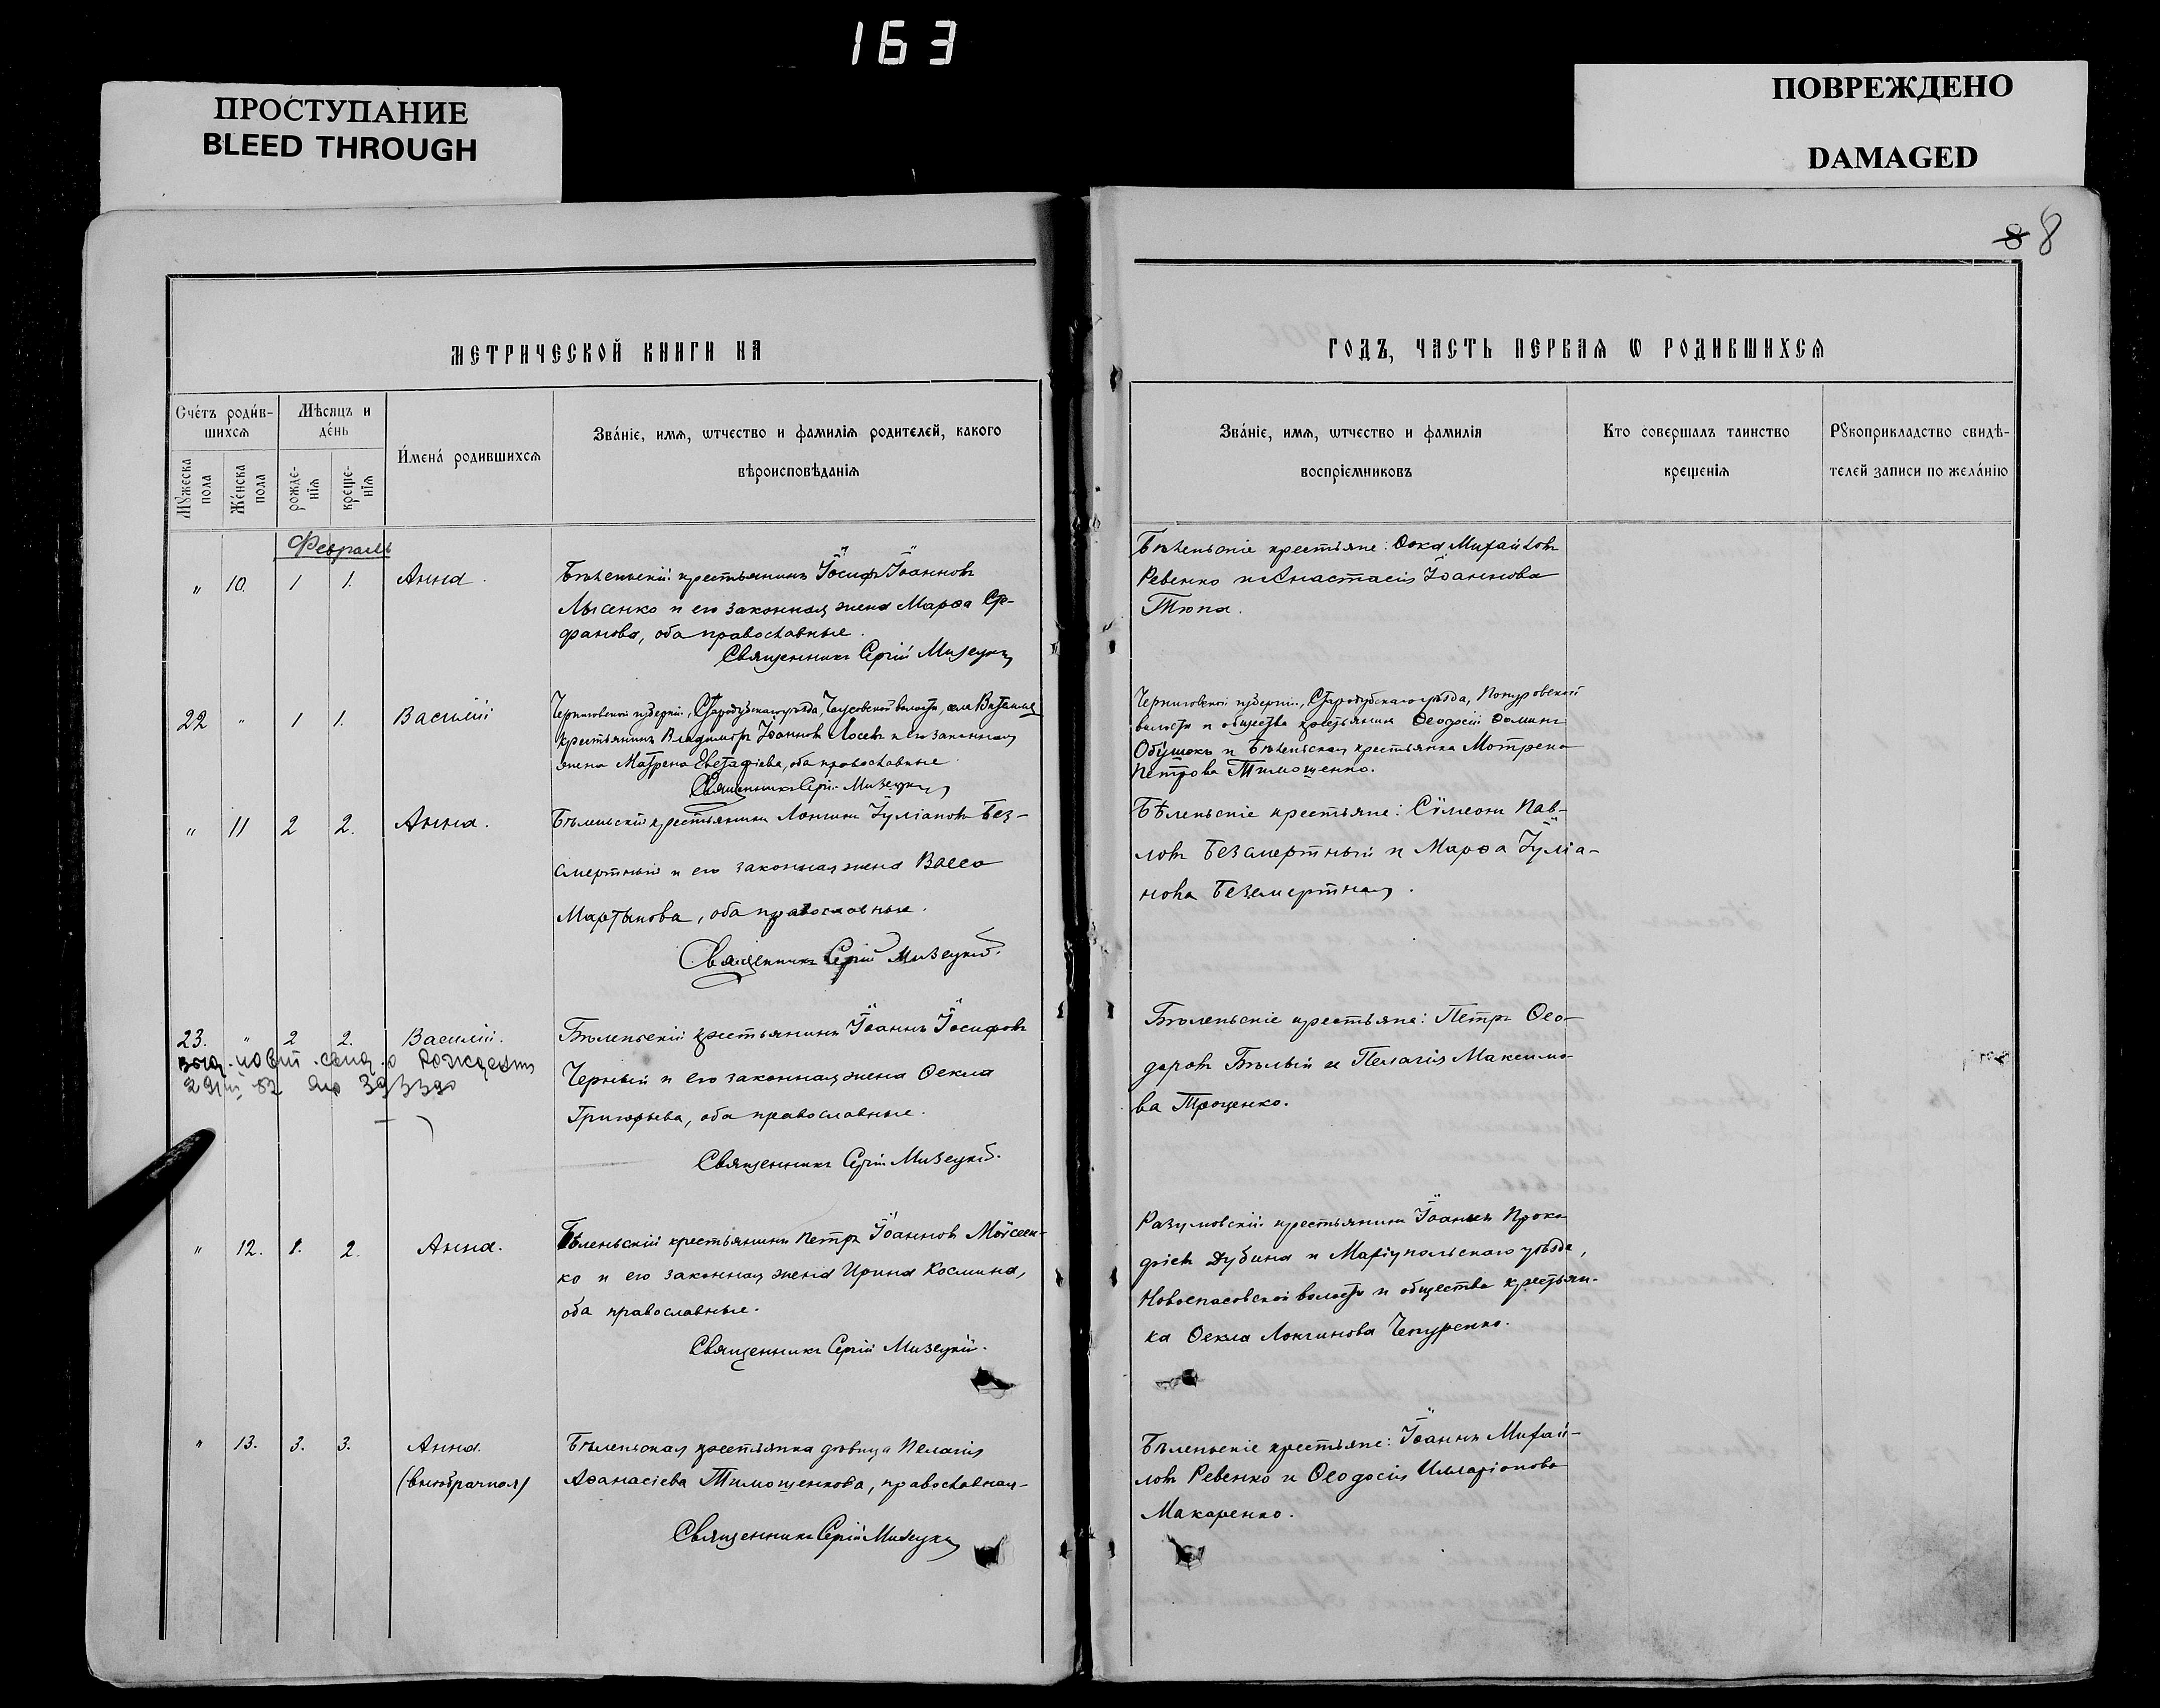 163
ПРОСТУПАНИЕ
BLEED THROUGH
ПОВРЕЖДЕНО
DAMAGED
8 8
МЕТРИЧЕСКОЙ КНИГИ НА
ГОДЪ, ЧАСТЬ ПЕРВАѦ Ѡ РОДИВШИХСѦ
Счéтъ роди́в-
шихсѧ
Мꙋ́жеска пола
Же́нска пола
Мѣ́сѧцъ и
де́нь
рожде-
нїѧ
креще-
нїѧ
И́мена́ родившихсѧ
Зва́нїе, имѧ, ѡтчество и фамилїѧ родителей, какого
вѣроисповѣданїѧ
Зва́нїе, имѧ, ѡтчество и фамилїѧ
воспрїемниковъ
Кто совершалъ таинство
крещенїѧ
Рꙋкоприкладство свидѣ-
телей записи по жела́нїю
Февраль
" 10. 1 1. Анна.
Бѣленькій крестьянинъ Іосифъ Іоанновъ
Лысенко и его законная жена Марѳа
оба православные.
Священникъ Сергій Мизецкій
Бѣленьскіе крестьяне: Ѳока Михайловъ
Ревенко и Анастасія Іоаннова
Тюпа.
22 " 1 1. Василій
Черниговской губерніи, Стародубскаго уѣзда, волости, села
крестьянинъ Владиміръ Іоанновъ Лосевъ и его законная
жена Матрена Евстафіева, оба православные.
Священникъ Сергій Мизецкій
Черниговской губерніи, Стародубскаго уѣзда, Понуровской
волости и общества крестьянинъ Ѳеодосій Ѳоминъ
Обушокъ и Бѣленьская крестьянка Мотрена
Петрова Тимошенко.
" 11 2 2. Анна.
Бѣленьскій крестьянинъ Лонгинъ Іуліановъ Без-
смертный и его законная жена Васса
Мартынова, оба православные.
Священникъ Сергій Мизецкій.
Бѣленьскіе крестьяне: Сімеонъ Пав-
ловъ Безсмертный и Марѳа Іуліа-
нова Безсмертная.
23. " 2 2. Василій.
Бѣленьскій крестьянинъ Іоаннъ Іосифовъ
Черный и его законная жена Ѳекла
Григорьева, оба православные.
Священникъ Сергій Мизецкій.
Бѣленьскіе крестьяне: Петръ Ѳео-
доровъ Бѣлый и Пелагія Максимо-
ва Троценко.
" 12. 1. 2. Анна.
Бѣленьскій крестьянинъ Петръ Іоанновъ Моісеен-
ко и его законная жена Ирина Космина,
оба православные.
Священникъ Сергій Мизецкій.
Разумовскій крестьянинъ Іоаннъ Проко-
фіевъ Дубина и Маріупольскаго уѣзда,
Новоспасовской волости и общества крестьян-
ка Ѳекла Лонгинова Чепуренко.
" 13. 3. 3. Анна.
(внѣбрачная)
Бѣленьская крестьянка дѣвица Пелагія
Аѳанасіева Тимошенкова, православная.
Священникъ Сергій Мизецкій
Бѣленьскіе крестьяне: Іоаннъ Михай-
ловъ Ревенко и Ѳеодосія Илларіонова
Макаренко.